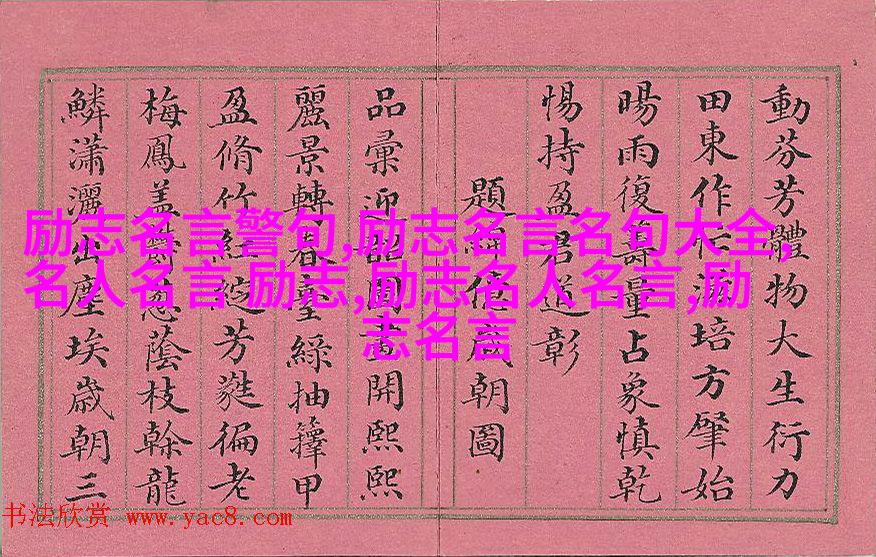 動芬芳體物大生衍力
田東作仁滋培方肇始
暘雨復量占象慎乾
惕持盈君道彰
題歲朝圖
品彙迎韶開熙熙
麗景轉春臺綠抽籜甲
盈脩竹紅綻芳蕤徧老
梅鳳蓋蔥蔭枝榦龍
鱗瀟灑出塵埃歲朝三
励志名言警句,励志名言名句大全,
名人名言励志,励志名人名言,励
志名言
书法欣赏 www.yac8.com